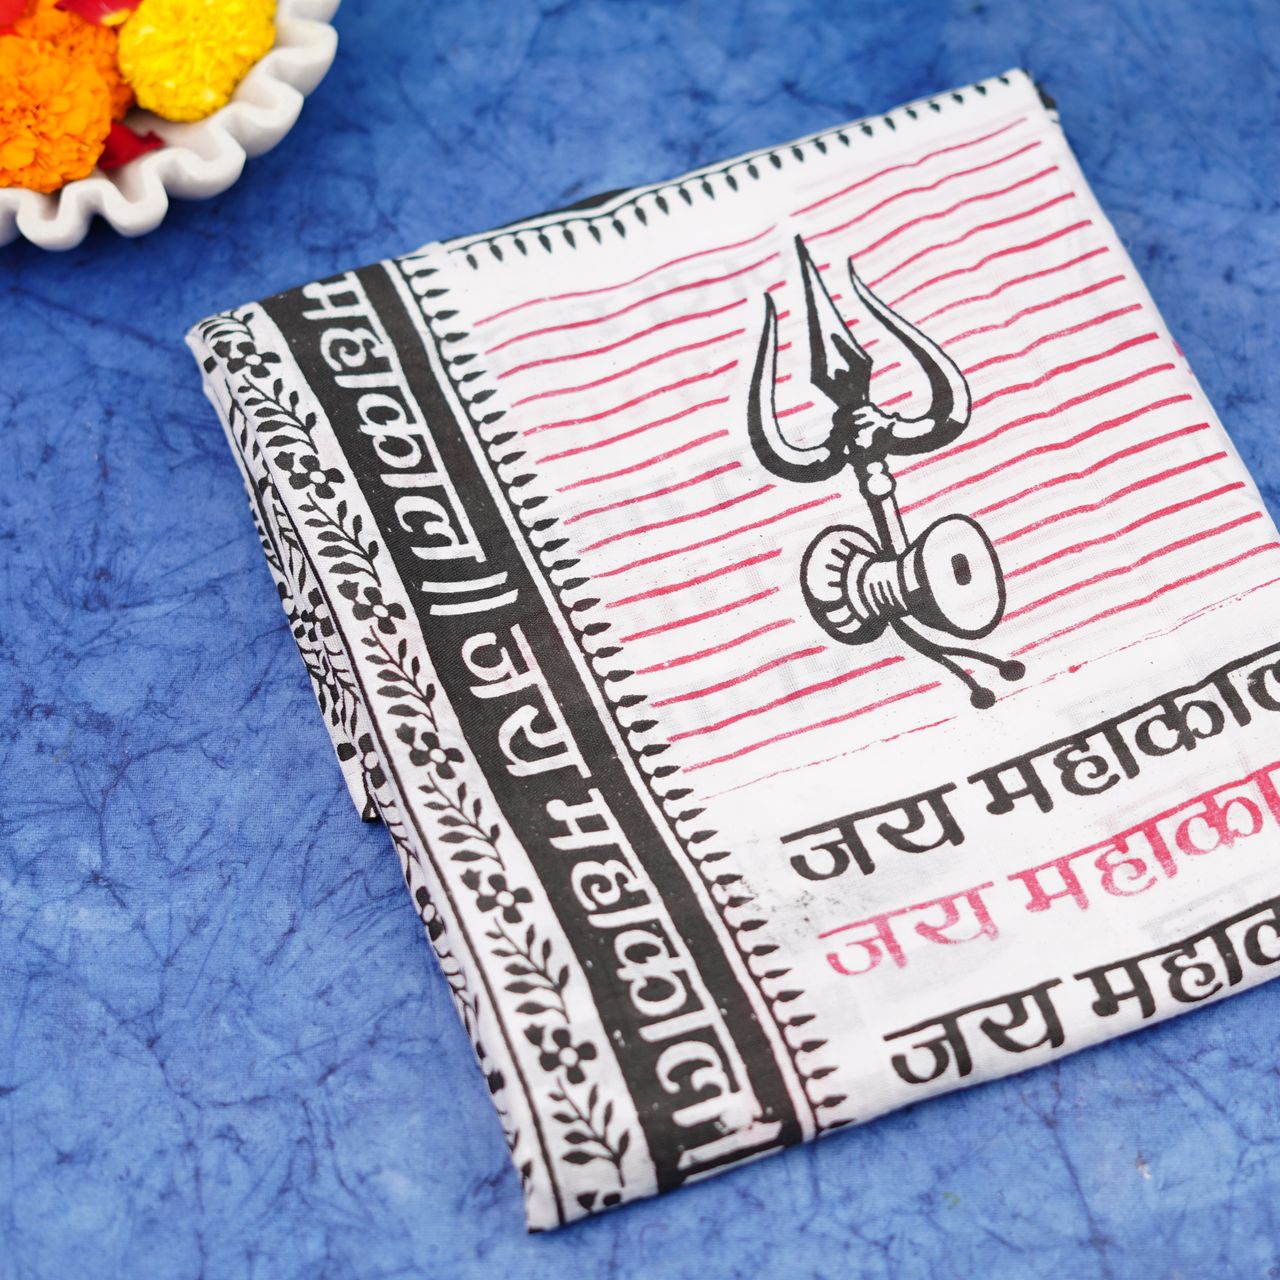 महाकाल || जय महाकाल
जय महाकाल
जय महाका
जय महाका